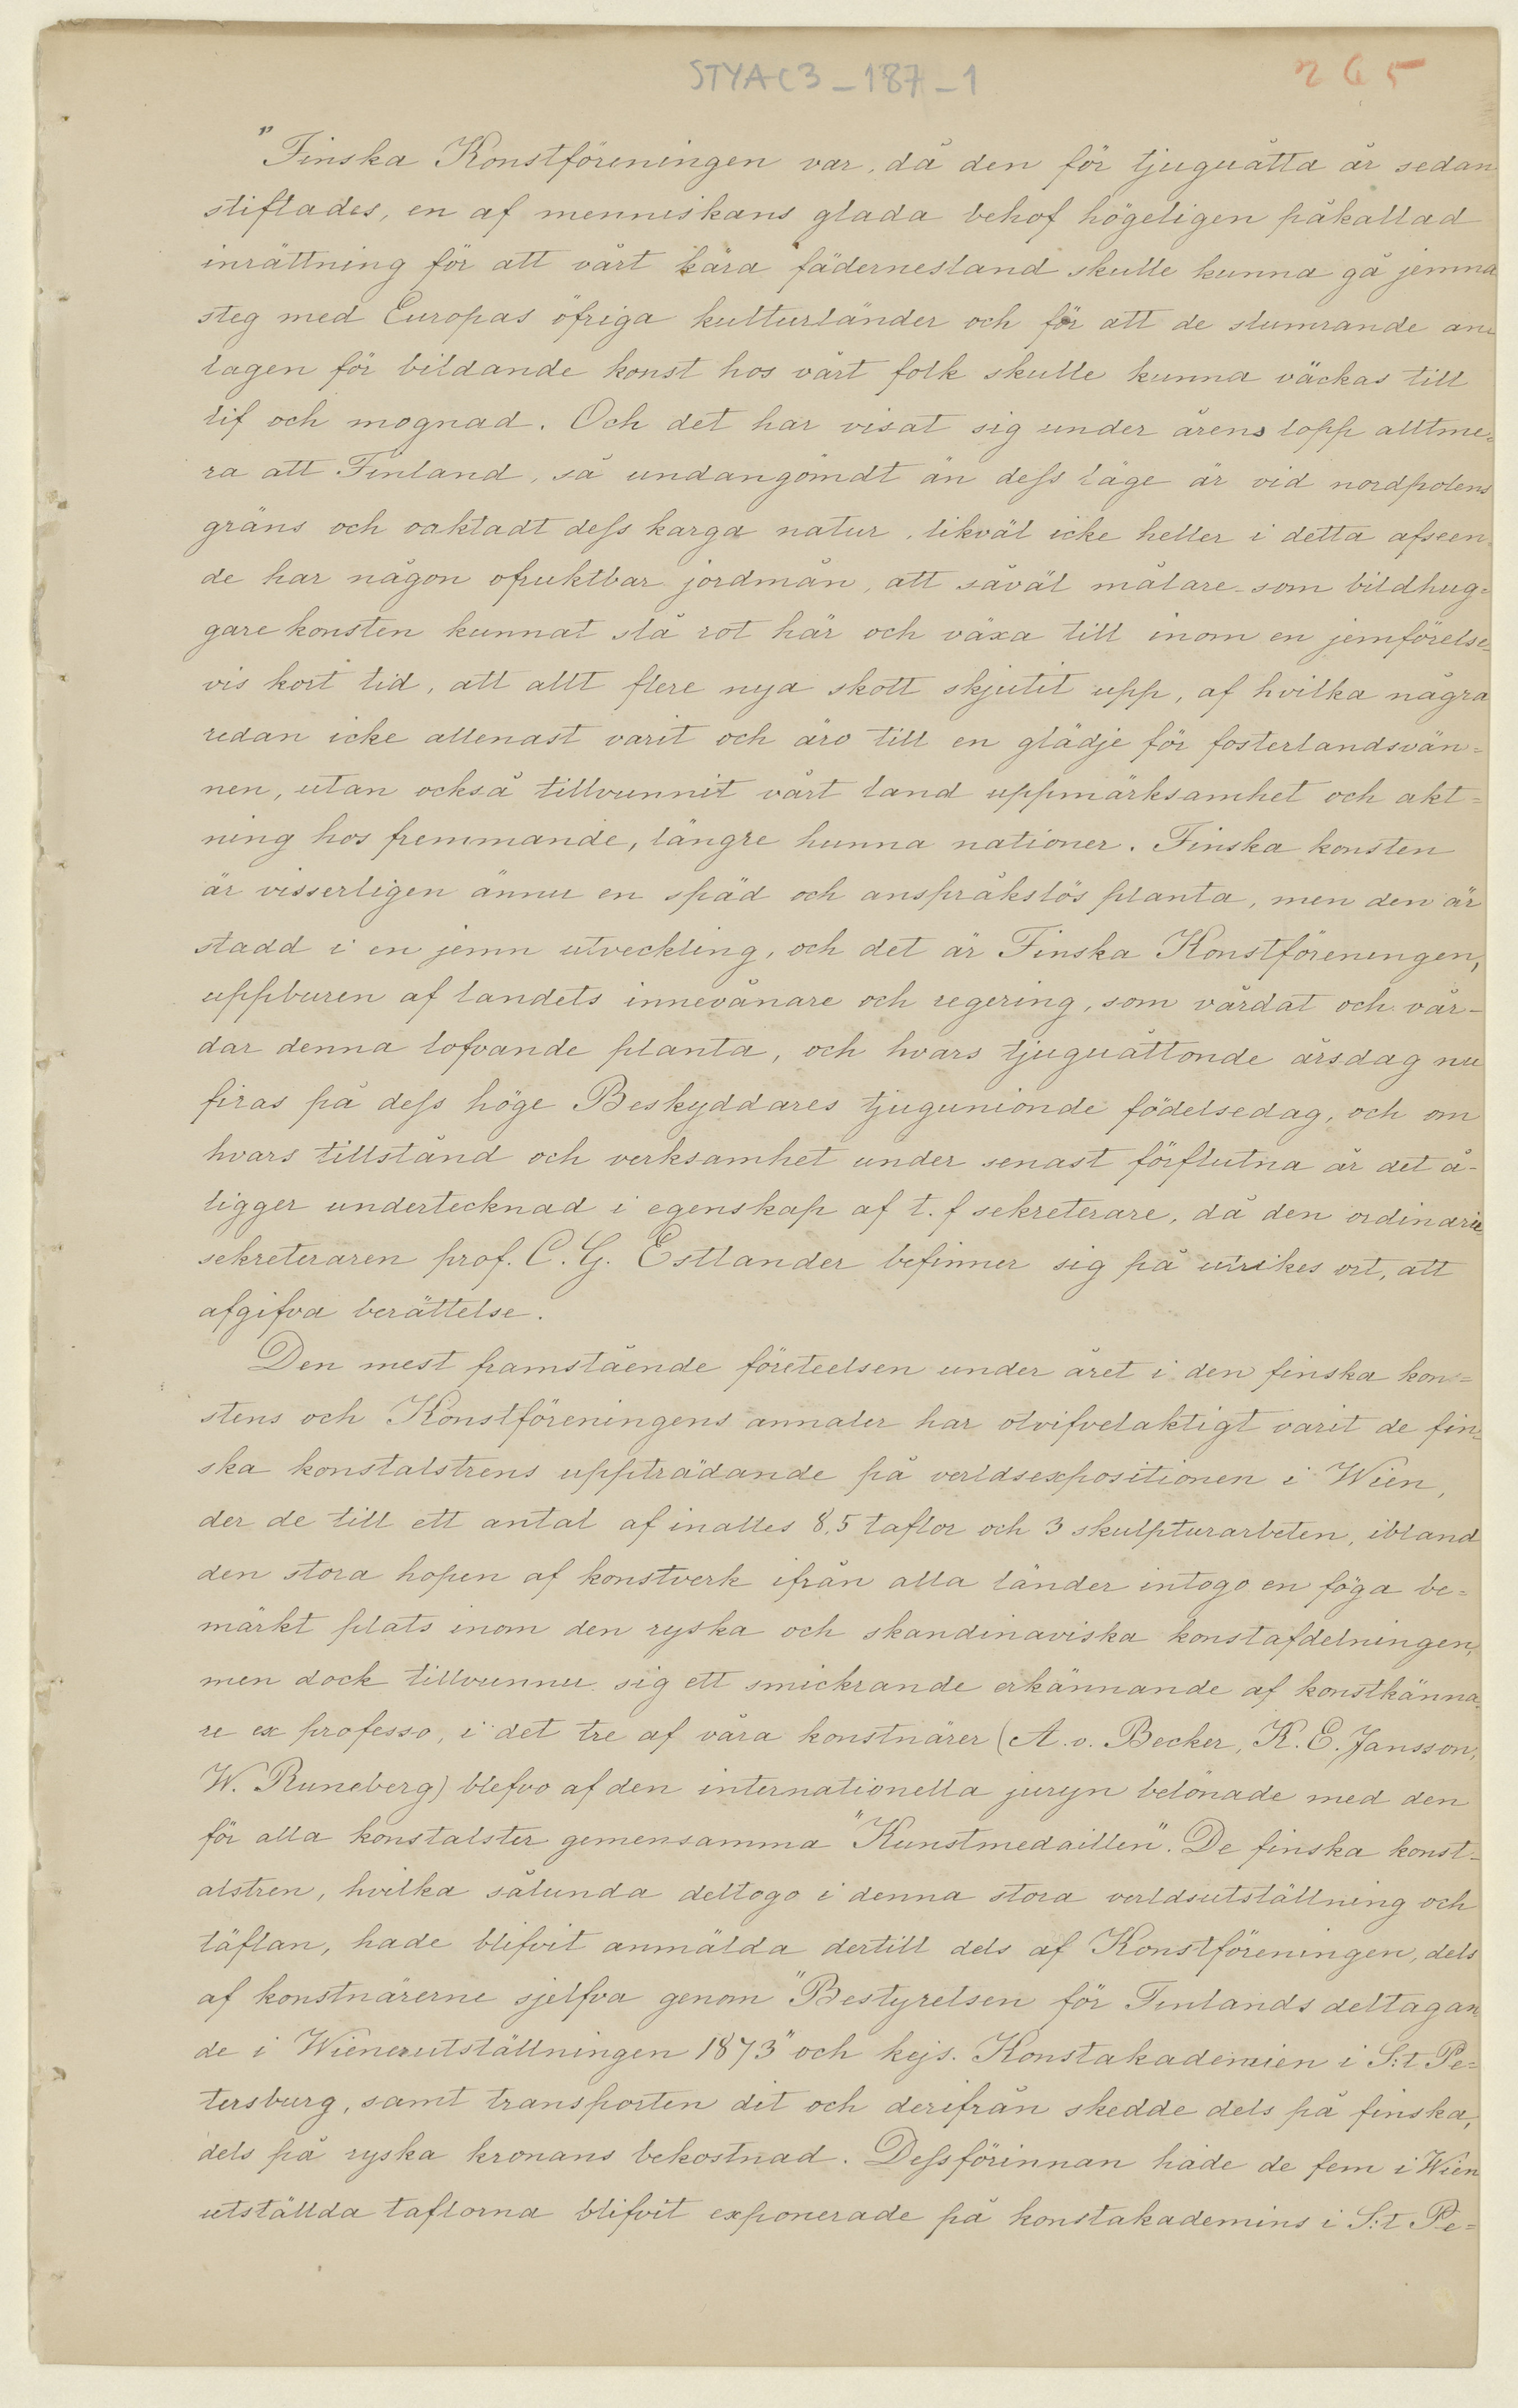 STYA C3_187_1
265
"Finska Konstföreningen var, då den för tjuguåtta år sedan
stiftades, en af menniskans glada behof högeligen påkallad
inrättning för att vårt kära fädernesland skulle kunna gå jemna
steg med Europas öfriga kulturländer och för att de slumrande an-
lagen för bildande konst hos vårt folk skulle kunna väckas till
lif och mognad. Och det har visat sig under årens lopp alltme=
ra att Finland, så undangömdt än dess läge är vid nordpolens
gräns och oaktadt dess karga natur, likväl icke heller i detta afseen=
de har någon ofruktbar jordmån, att såväl målare- som bildhug=
garekonsten kunnat slå rot här och växa till inom en jemförelse=
vis kort tid, att allt flere nya skott skjutit upp, af hvilka några
redan icke allenast varit och äro till en glädje för fosterlandsvän=
nen, utan också tillvunnit vårt land uppmärksamhet och akt=
ning hos fremmande, längre hunna nationer. Finska konsten
är visserligen ännu en späd och anspråkslös planta, men den är
stadd i en jemn utveckling, och det är Finska Konstföreningen,
uppburen af landets innevånare och regering, som vårdat och vår-
dar denna lofvande planta, och hvars tjuguåttonde årsdag nu
firas på dess höge Beskyddares tjugunionde födelsedag, och om
hvars tillstånd och verksamhet under senast förflutna år det å-
ligger undertecknad i egenskap af t.f sekreterare, då den ordinarie
sekreteraren prof. C. G. Estlander befinner sig på utrikes ort, att
afgifva berättelse.
Den mest framstående företeelsen under året i den finska kon=
stens och Konstföreningens annaler har otvifvelaktigt varit de fin=
ska konstalstrens uppträdande på verldsexpositionen i Wien,
der de till ett antal af inalles 8, 5 taflor och 3 skulpturarbeten, ibland
den stora hopen af konstverk ifrån alla länder intogo en föga be=
märkt plats inom den ryska och skandinaviska konstafdelningen,
men dock tillvunnu sig ett smickrande erkännande af konstkänna=
re ex professo, i det tre af våra konstnärer (A. v. Becker, K. E. Jansson,
W. Runeberg) blefvo af den internationella juryn belönade med den
för alla konstalster gemensamma "Kunstmedaillen". De finska konst-
alstren, hvilka sålunda deltogo i denna stora verldsutställning och
täflan, hade blifvit anmälda dertill dels af Konstföreningen, dels
af konstnärerne sjelfva genom "Bestyrelsen för Finlands deltagan
de i Wienerutställningen 1873" och kejs. Konstakademien i S:t Pe=
tersburg, samt transporten dit och derifrån skedde dels på finska,
dels på ryska kronans bekostnad. Dessförinnan hade de fem i Wien
utställda taflorna blifvit exponerade på konstakademins i S:t Pe=